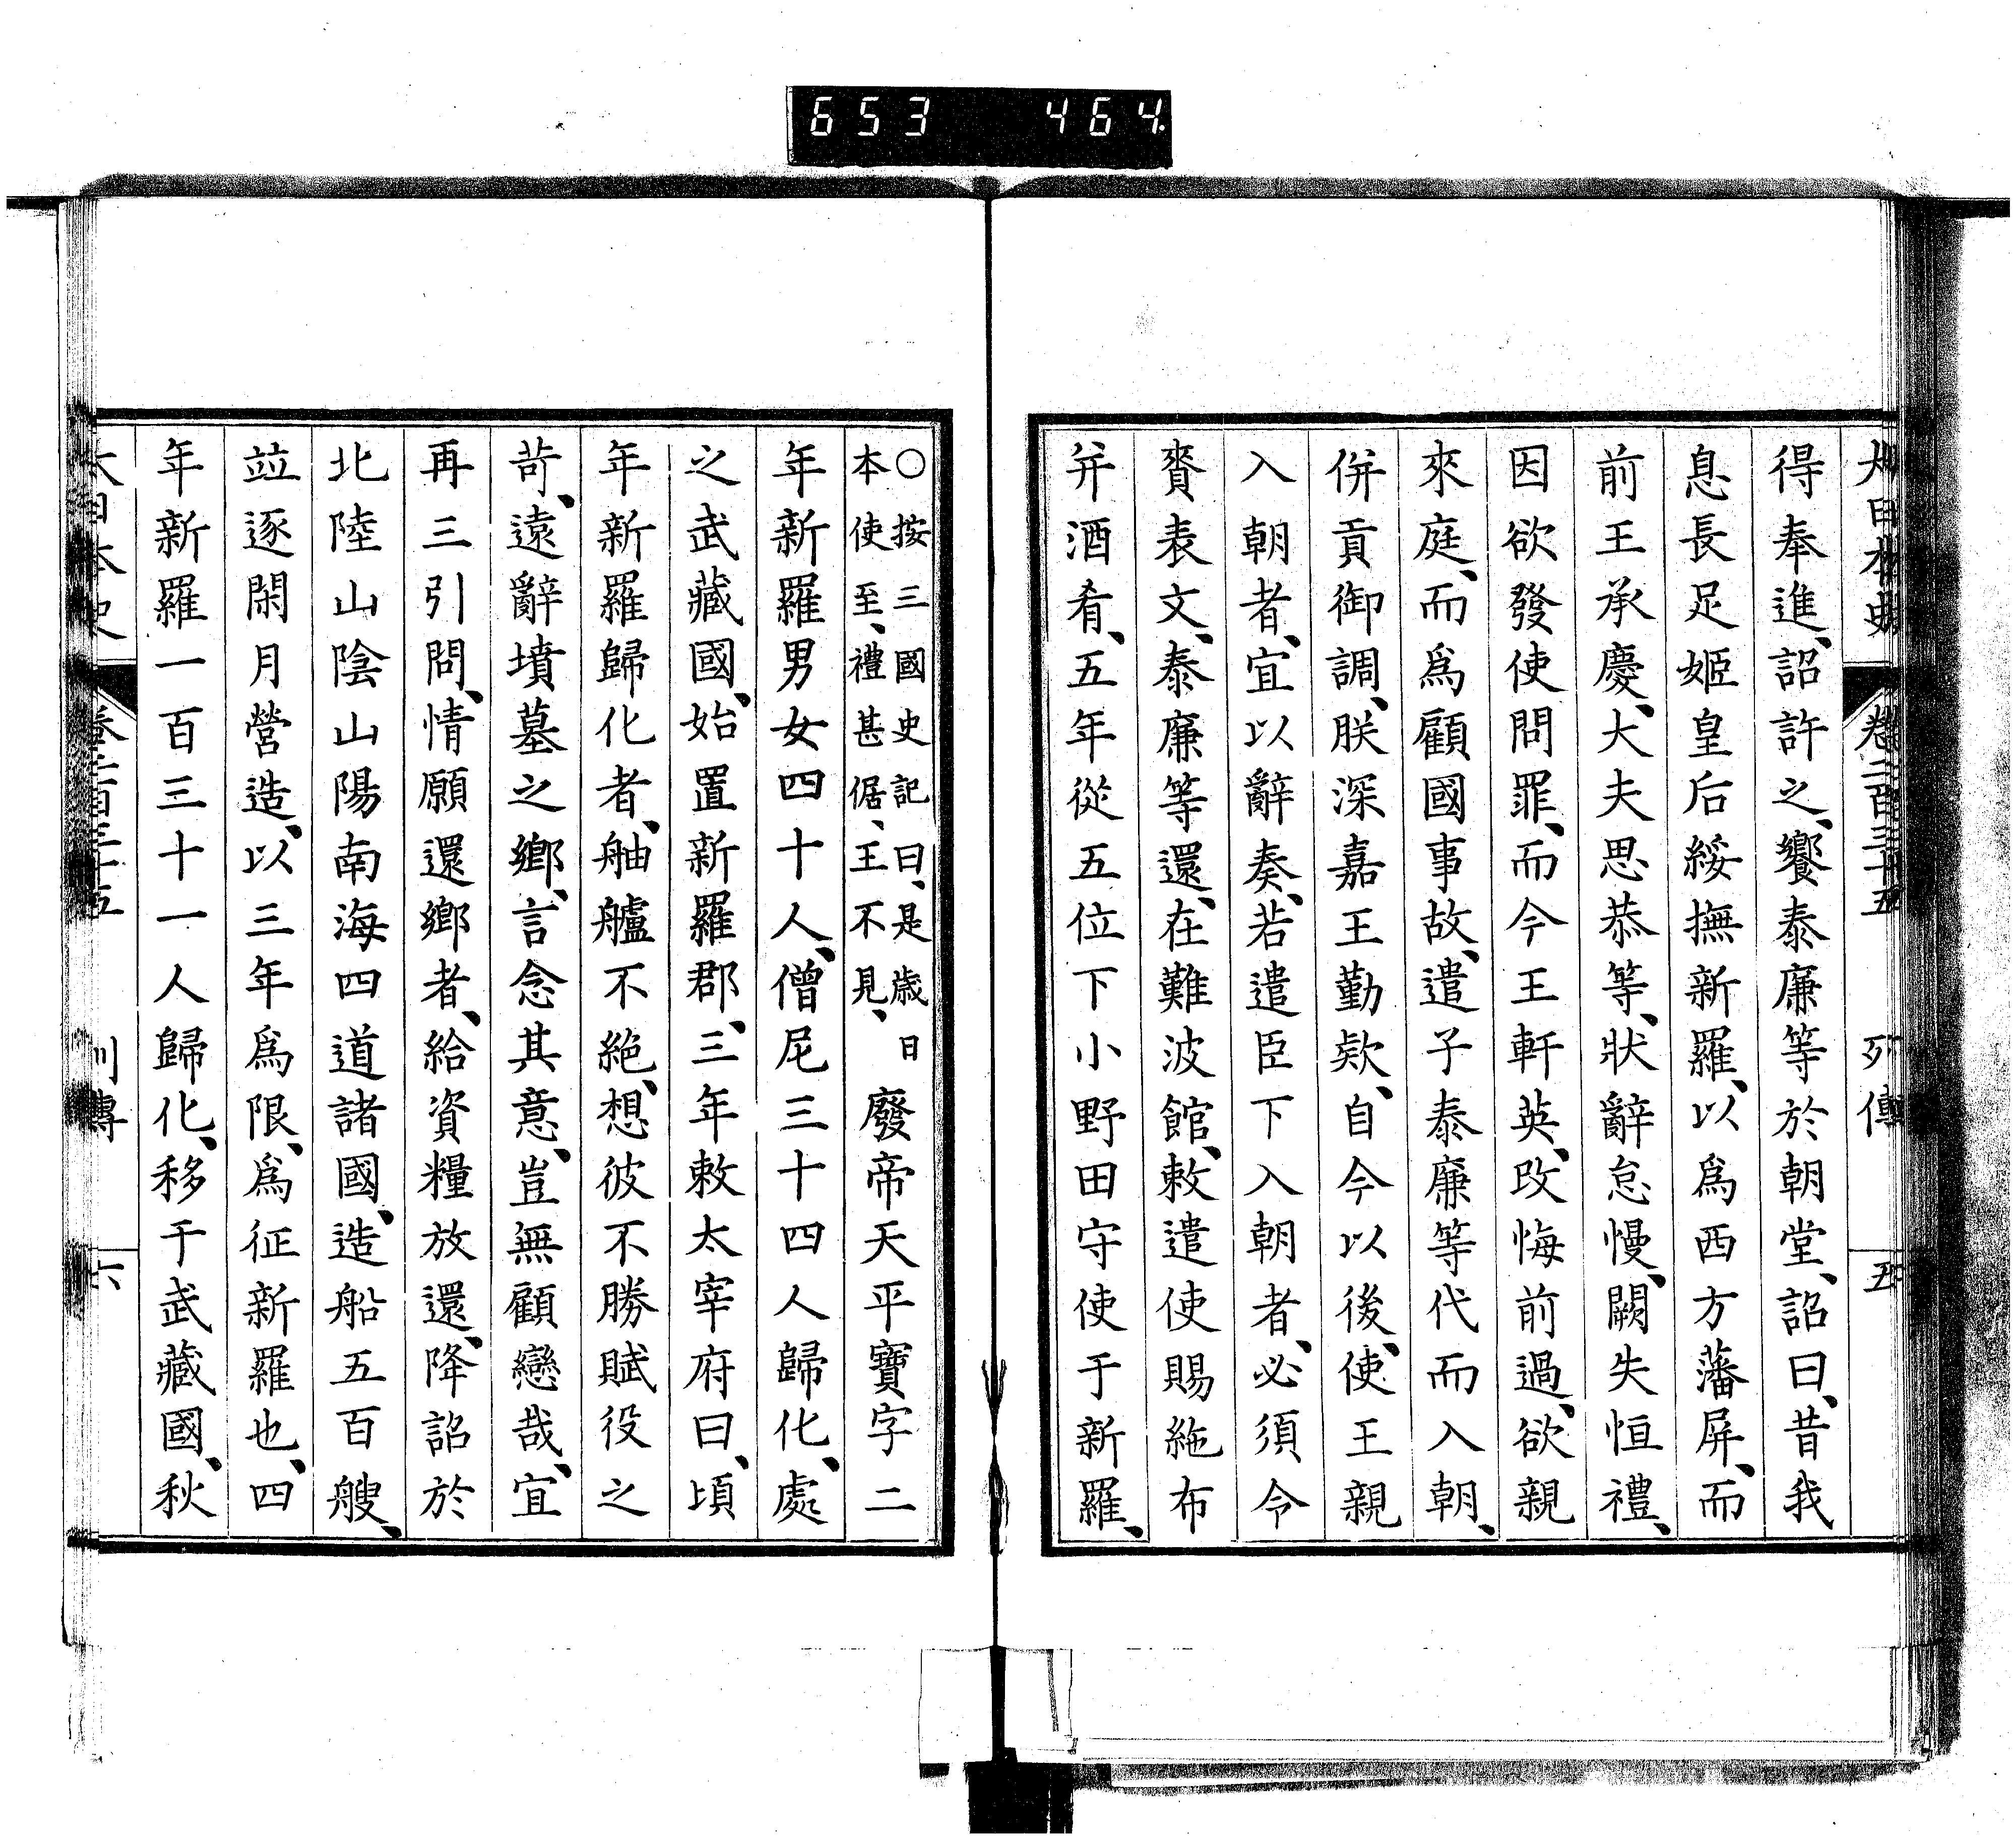 653 464.
大日本史 卷二百三十五 列傳 五
得奉進、詔許之、饗泰廉等於朝堂、詔曰、昔我
息長足姬皇后綏撫新羅、以爲西方藩屏、而
前王承慶、大夫思恭等、狀辭怠慢、闕失恒禮、
因欲發使問罪、而今王軒英、改悔前過、欲親
來庭、而爲顧國事故、遣子泰廉等代而入朝、
併貢御調、朕深嘉王勤欵、自今以後、使王親
入朝者、宜以辭奏、若遣臣下入朝者、必須令
賷表文、泰廉等還、在難波館、敕遣使賜絁布
幷酒肴、五年從五位下小野田守使于新羅、
○按三國史記曰、是歲日
本使至、禮甚倨、王不見、廢帝天平寶字二
年新羅男女四十人、僧尼三十四人歸化、處
之武藏國、始置新羅郡、三年敕太宰府曰、頃
年新羅歸化者、舳艫不絶、想彼不勝賦役之
苛、遠辭墳墓之鄉、言念其意、豈無顧戀哉、宜
再三引問、情願還鄉者、給資糧放還、降詔於
北陸山陰山陽南海四道諸國、造船五百艘、
竝逐閑月營造、以三年爲限、爲征新羅也、四
年新羅一百三十一人歸化、移于武藏國、秋
大日本史 卷二百三十五 列傳 六